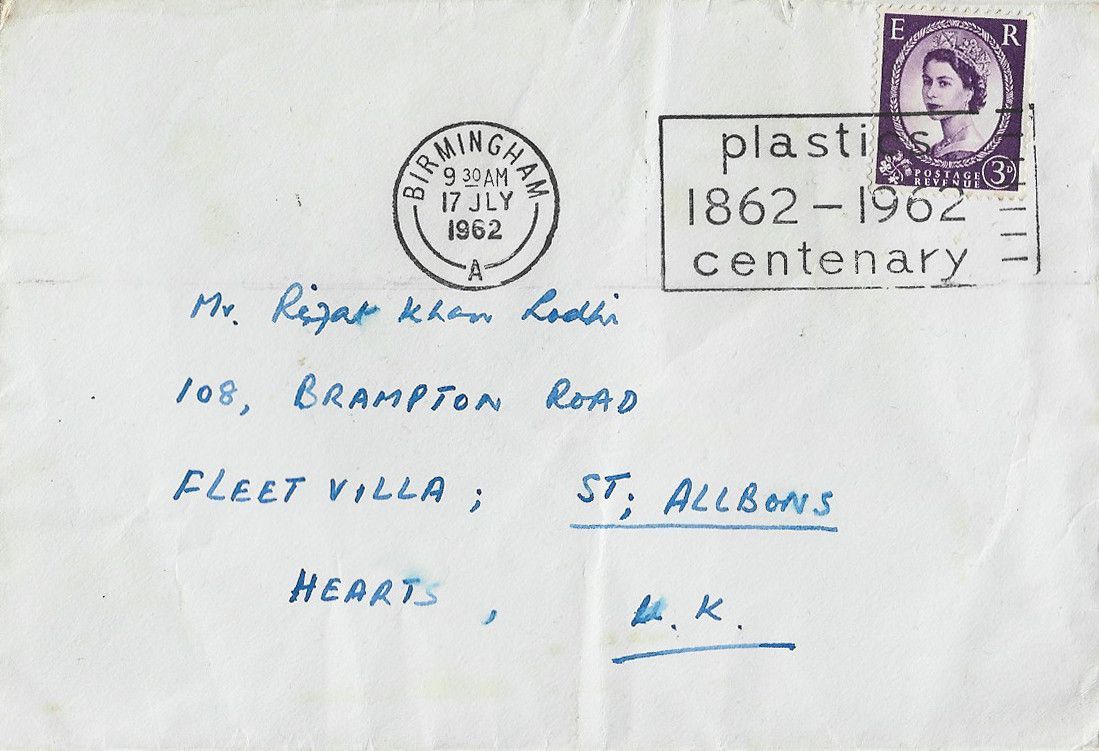 E R
POSTAGE
REVENUE
3D
BIRMINGHAM
9 30 AM
17 JLY
1962
A
plastics
1862 – 1962
centenary
Mr. Rizat Khan Lodhi
108, BRAMPTON ROAD
FLEET VILLA ; ST; ALLBONS
HEARTS, U. K.